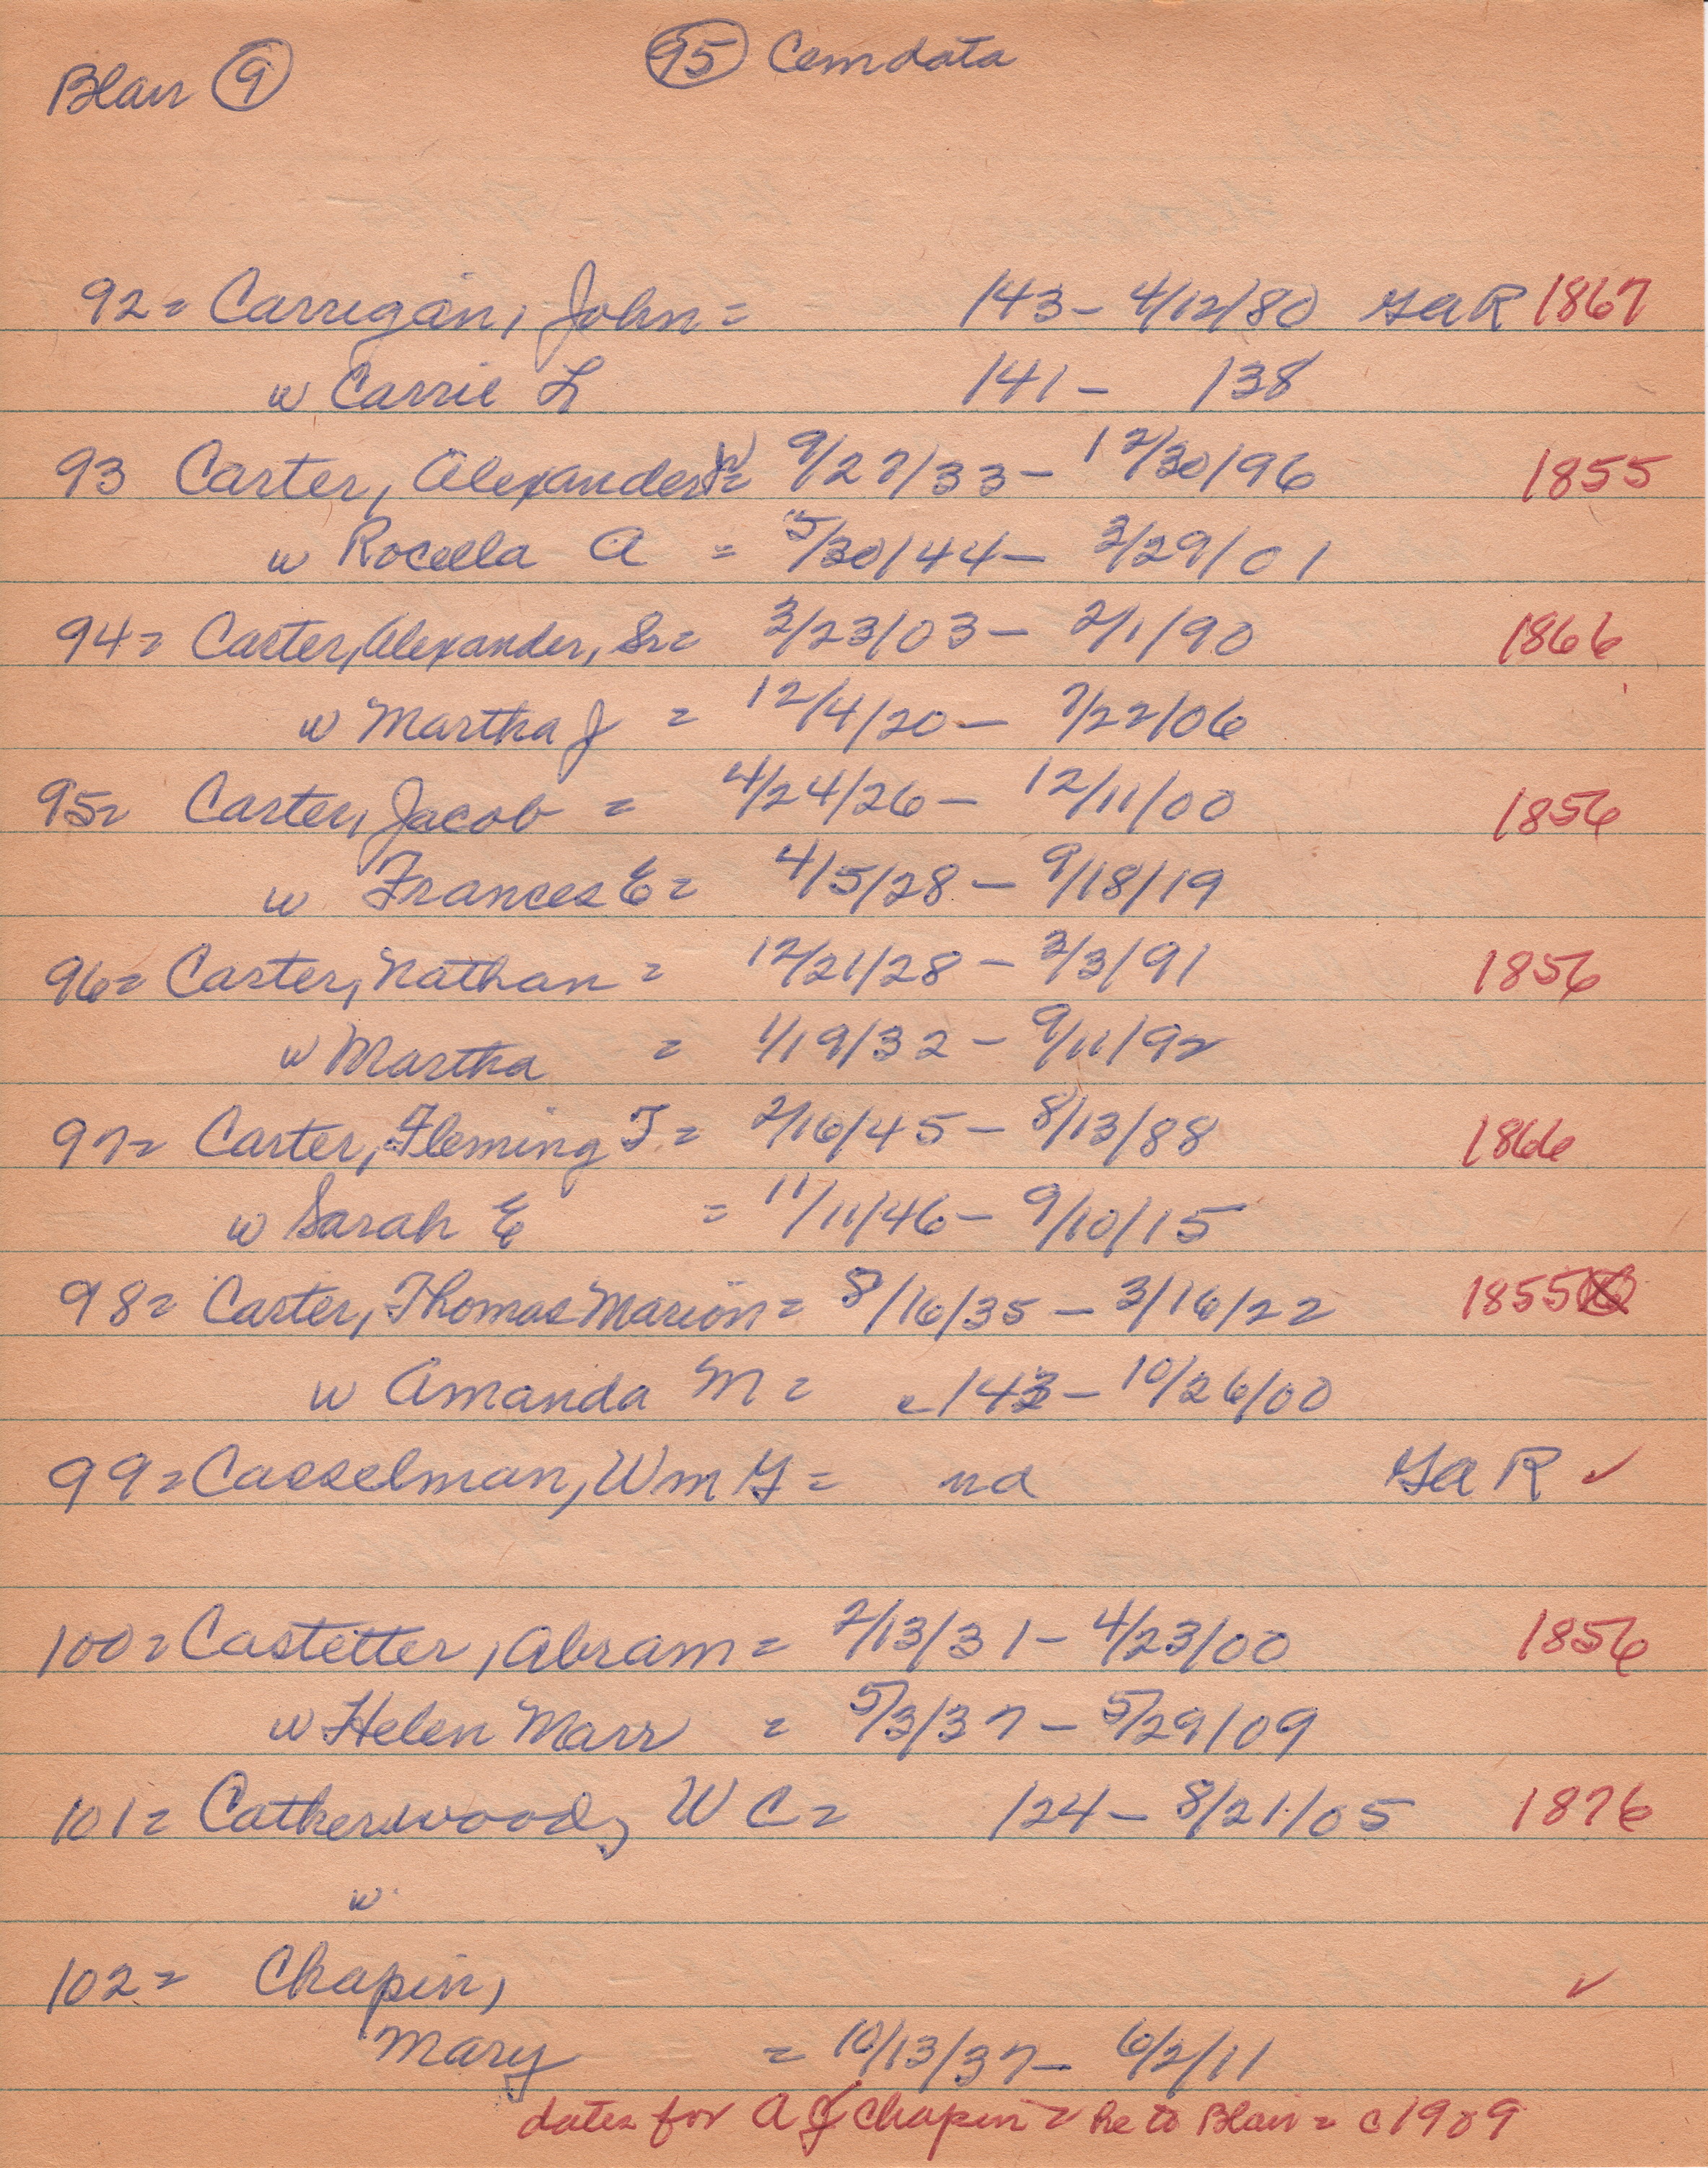 Blair 9 95 Cemdata
92= Carrigan, John = 143- 4/12/80 GAR 1867
w Carrie L 141- 138
93 Carter, Alexander W = 9/27/33- 12/30/96 1855
w Rocella A = 5/30/44- 3/29/01
94= Carter, Alexander, Sr= 3/23/03- 2/1/90 1866
w Martha J = 12/4/20- 7/22/06
95= Carter, Jacob = 4/24/26- 12/11/00 1856
w Frances E= 4/5/28- 9/18/19
96= Carter, Nathan = 12/21/28- 3/3/91 1856
w Martha = 1/19/32- 9/11/92
97= Carter, Fleming T= 2/16/45- 8/13/88 1866
w Sarah E = 11/11/46- 9/10/15
98= Carter, Thomas Marion= 8/16/35- 3/16/22 1855
w Amanda M= c 143- 10/26/00
99= Casselman, Wm G= nd GAR ✓
100= Castetter, Abram= 2/13/31- 4/23/00 1856
w Helen Marr = 5/3/37- 5/29/09
101= Catherwood, W C= 124- 8/21/05 1876
w
102= Chapin, ✓
Mary = 10/13/37- 6/2/11
dates for A J Chapin= he to Blair= c1909